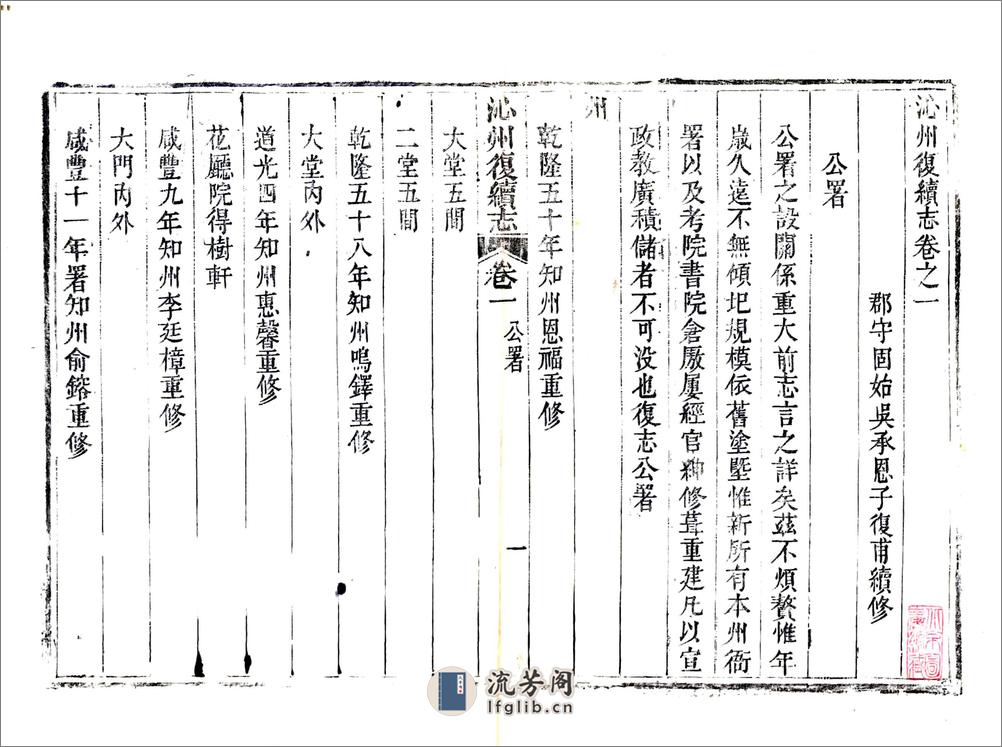 沁州復續志卷之一
郡守固始吳承恩子復甫續修
公署
公署之設關係重大前志言之詳矣茲不煩贅惟年
歲久遠不無傾圮規模依舊塗塈惟新所有本州衙
署以及考院書院倉厫屢經官紳修葺重建凡以宣
政教廣積儲者不可没也復志公署
州
乾隆五十年知州恩福重修
沁州復續志 卷一 公署 一
大堂五間
二堂五間
乾隆五十八年知州鳴鐸重修
大堂内外
道光四年知州惠馨重修
花廳院得樹軒
咸豐九年知州李廷樟重修
大門内外
咸豐十一年署知州俞鎔重修
流芳阁
lfglib.cn